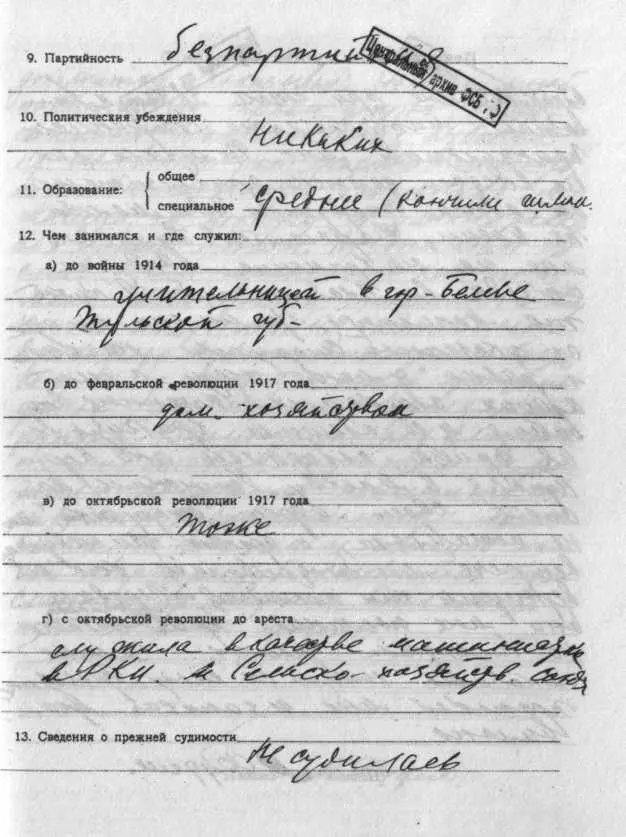 9. Партийность безпартийная
Центральный архив ФСБ
10. Политические убеждения
никаких
11. Образование: общее
специальное среднее (кончила
12. Чем занимался и где служил:
а) до войны 1914 года
учительницей в гор-Белеве
Тульской губ-
б) до февральской революции 1917 года
дом. хозяйством
в) до октябрьской революции 1917 года
тоже
г) с октябрьской революции до ареста
служила в качестве машинистки
в РКИ. и Сельско-хозяйств. союзе
13. Сведения о прежней судимости
не судилась